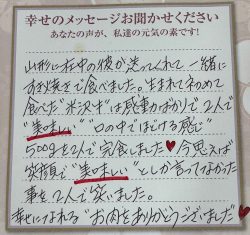 幸せのメッセージお聞かせください
あなたの声が、私達の元気の素です!
山形に在中の彼が送ってくれて一緒に
すき焼きで食べました。生まれて初めて
食べた"米沢牛"は感動のあまりで2人で
"美味しい" "口の中でほどける感じ"
500gを2人で完食しました♥今思えば
笑顔で"美味しい"としか言ってなかった
事を2人で笑いました。
幸せになれる"お肉をありがとうございました♥